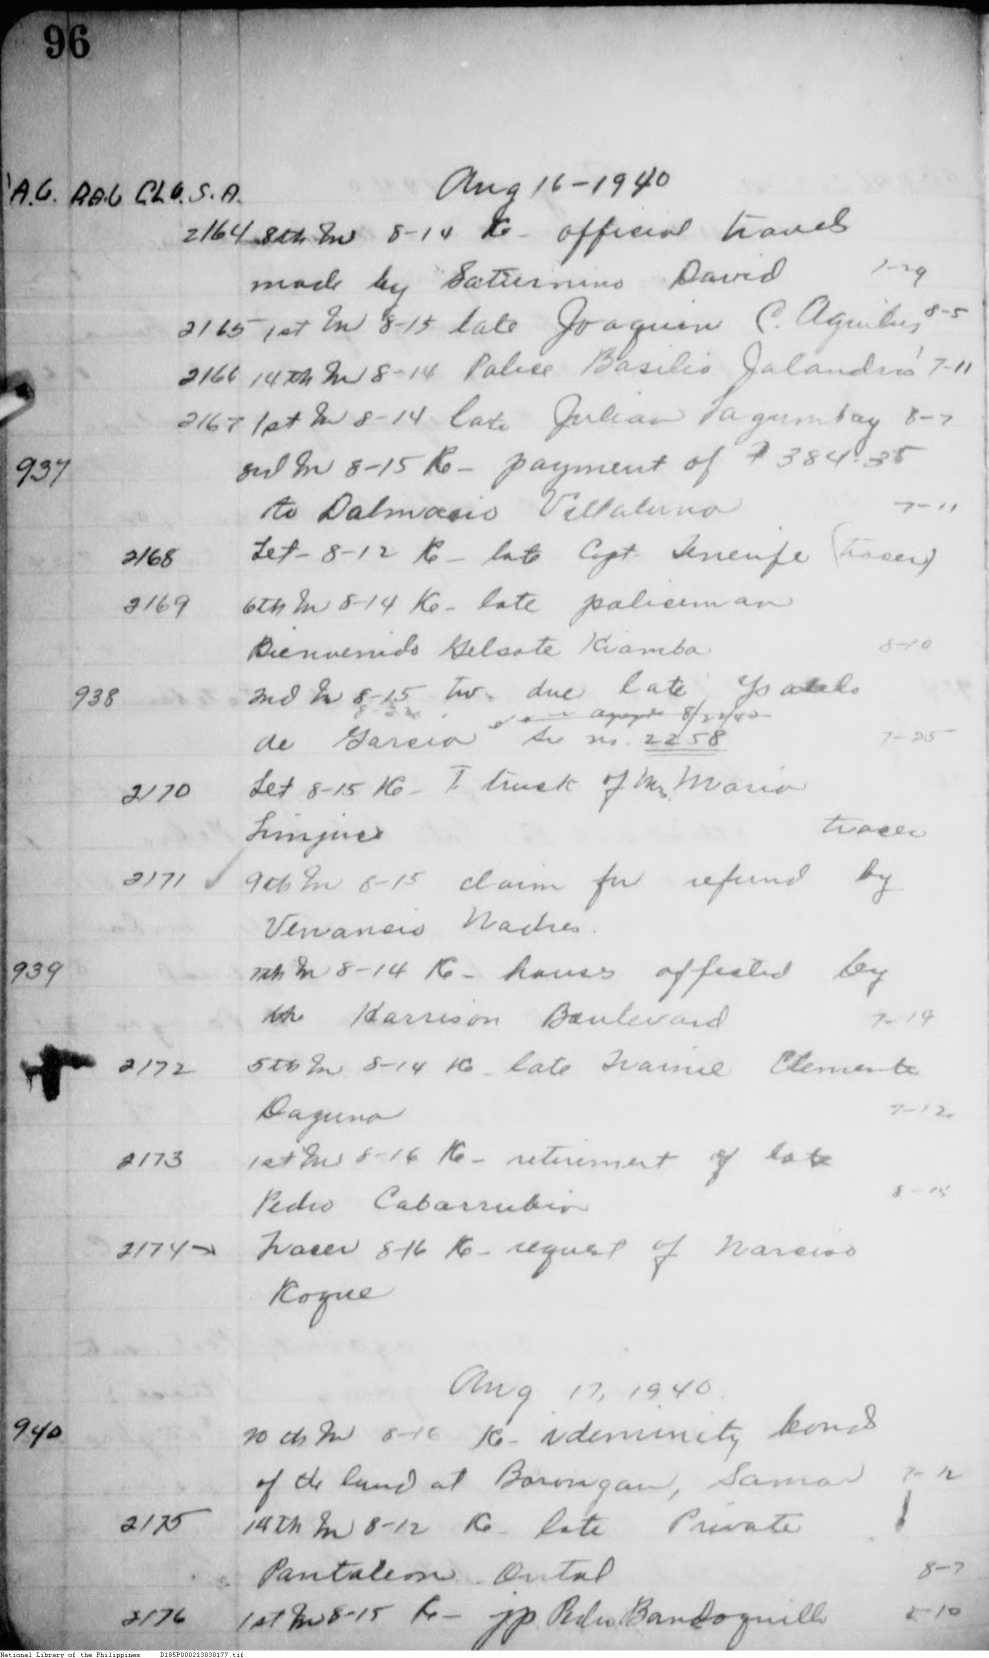 96
A.G. AAG Ch.G. S.A. Aug 16-1940
2164 8th In 8-14 Re- official travels
made by Saturnino David 7-29
2165 1st In 8-15 late Joaquin C. 8-5
2166 14th In 8-14 Police Basilio 7-11
2167 1st In 8-14 late Julian Pagumbay 8-7
937 3rd In 8-15 Re- payment of ₱384.35
to Dalmacio Villaluna 7-11
2168 Let- 8-12 Re- late Cpt. Tenerife (tracer)
2169 6th In 8-14 Re- late policeman
Bienvenido Gelsote Kiamba 8-10
938 2nd In 8-15 due late
8/22/40
de Garcia no. 2258 7-25
2170 Let 8-15 Re- T truck of Mr. Mario
Limjuco tracer
2171 9th In 8-15 claim for refund by
Venancio Nadres.
939 In 8-14 Re- houses affected by
the Harrison Boulevard 7-19
2172 5th In 8-14 Re- late Trainee Clemente
Daguna 7-12
2173 1st In 8-16 Re- retirement of late
Pedro Cabarrubia 8-15
2174 Tracer 8-16 Re- request of Narciso
Roque
Aug 17, 1940.
940 10th In 8-16 Re- idemnity bond
of the land at Borongan, Samar 7-12
2175 14th In 8-12 Re- late Private
Pantaleon Ontal 8-7
2176 1st In 8-15 Re- jp Pedro
National Library of the Philippines D185P000213838177.tif